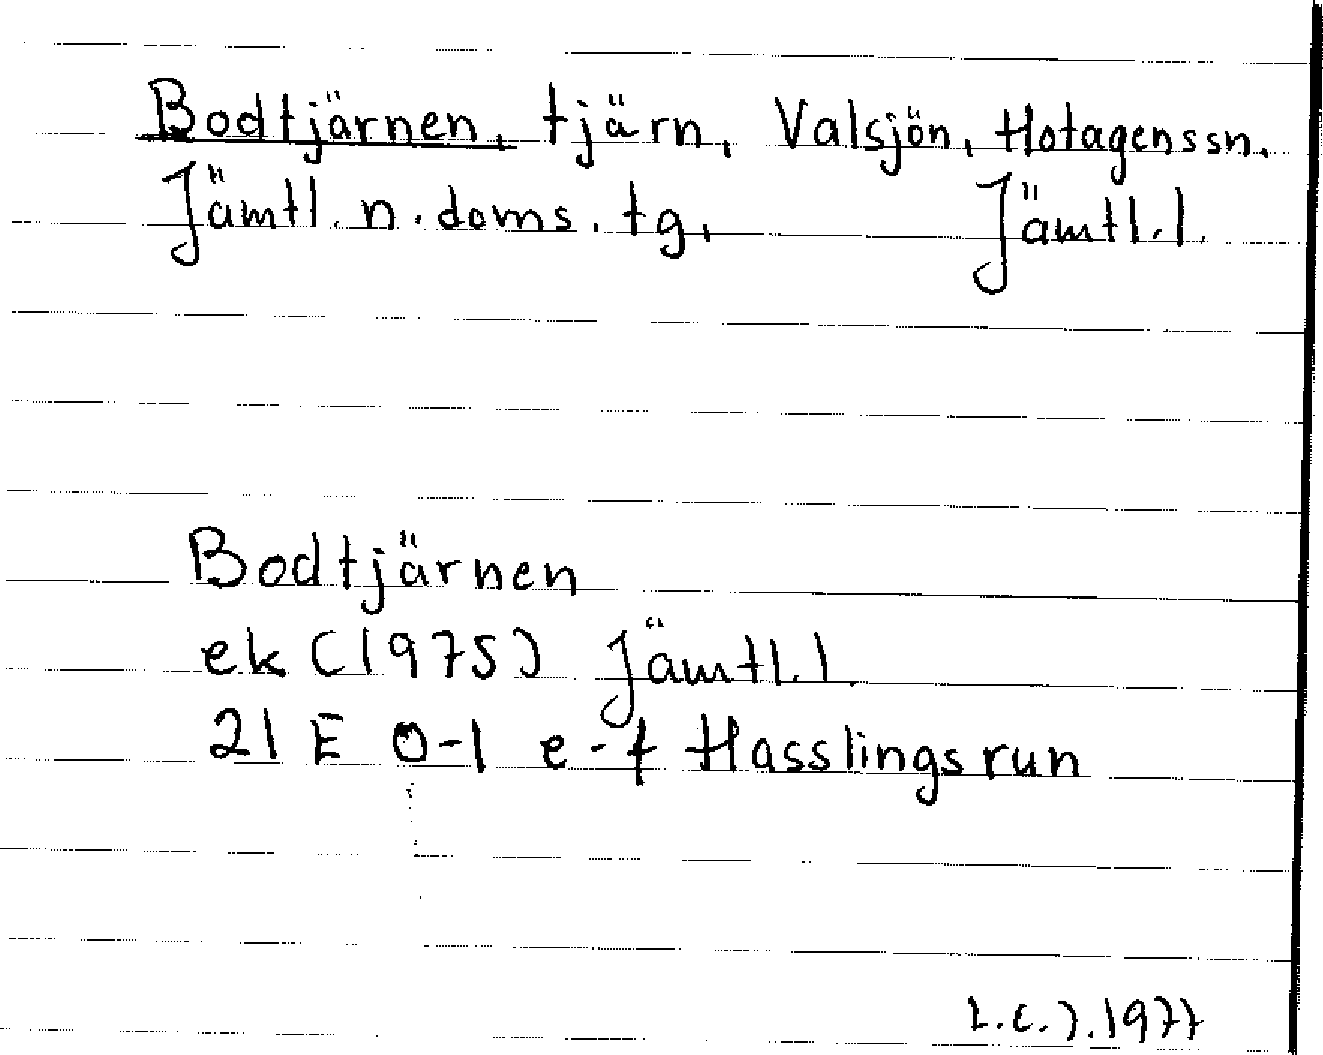 Bodtjärnen, tjärn, Valsjön, Hotagenssn.
Jämtl. n. doms. tg, Jämtl. l.
Bodtjärnen
ek (1975) Jämtl. l.
21 E 0-1 e-f Hasslingsrun
1977